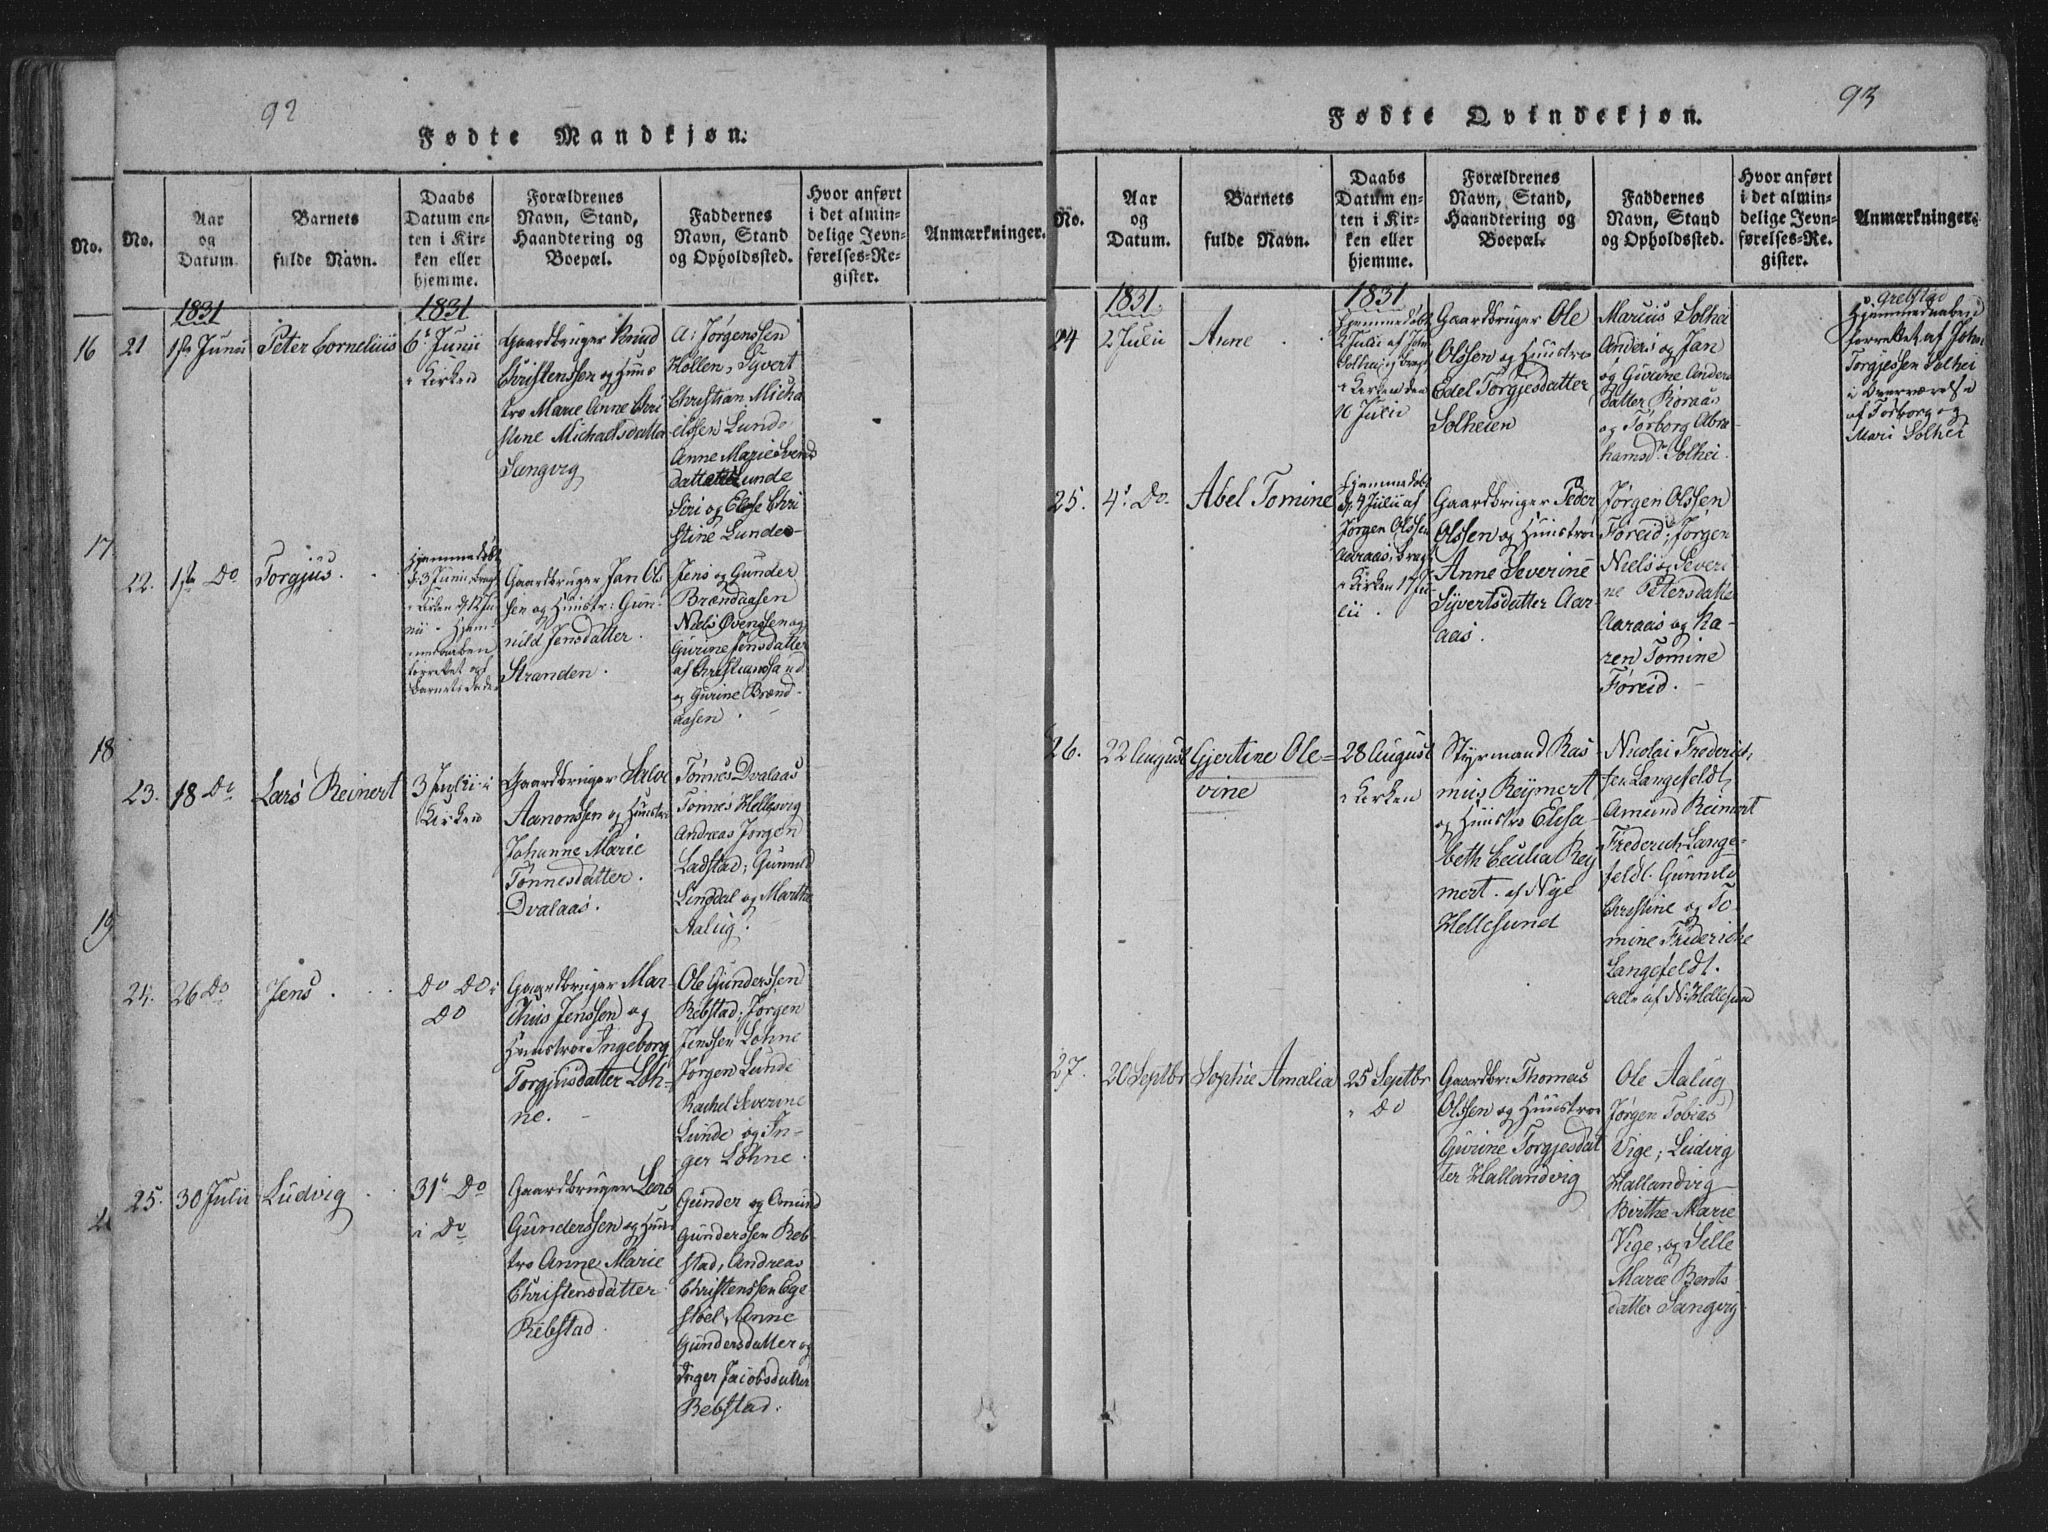 92
Fødte Mandkjøn.
No.
No.
Aar
og
Datum.
Barnets
fulde Navn.
Daabs
Datum en-
ten i Kir-
ken eller
hjemme.
Forældrenes
Navn, Stand,
Haandtering og
Boepæl.
Faddernes
Navn, Stand
og Opholdssted.
Hvor anført
i det almin-
delige Jevn-
førelses-Re-
gister.
Anmærkninger.
16
17.
18
19
1831
1831
21
1ste Junii
Peter Cornelius
6te Junii
i Kirken
Gaardbruger Knud
Christenssen og Hus
tro Marie Anne Chri
stine Michaelsdatter
Langvig
A: Jørgenssen
Hollen, Syvert
Christian Micha
elssen Lunde
Anne Marie Svend
datter Lunde
Siri og Else Chri
stine Lunde
22.
1ste Do
Torgjus.
Hjemmedøbt
d: 3 Junii, bragt
i Kirken d: 12 Ju
nii - Hjem-
medaaben
forrettet af
Barnets Fader
Gaardbruger Jan Ol
sen og Hustr: Gun-
nild Jensdatter.
Stranden.
Jens og Gunder
Brændaasen
Niels Ovenssen og
Gurine Jensdatter
af Christiansand
og Gurine Brænd-
aasen.
23.
18 Do
Lars Reinert
3 Julii i
Kirken
Gaardbruger Salve
Aanonssen og Hustro
Johanne Marie
Tønnesdatter.
Dvalaas.
Tønnes Dvalaas
Tønnes Hellesvig
Andreas Jørgen
Ladstad; Gunnild
Linddal og Marthe
Aalug.
24.
26 Do
Jens
Do Do i
Do
Gaardbruger Mar-
thius Jenssen og
Hustroe Ingeborg
Torgjusdatter Løh-
ne.
Ole Gunderssen
Rebstad; Jørgen
Jenssen Løhne
Jørgen Lunde
Rachel Severine
Lunde og In-
ger Løhne.
25.
30 Julii
Ludvig
31te Do
i Do
Gaardbruger Lars
Gunderssen og Hus
tro Anne Marie
Christensdatter
Rebstad.
Gunder og Omund
Gunderssen Reb-
stad, Andreas
Christenssen Ege
støel, Anne
Gundersdatter og
Inger Jacobsdatter
Rebstad.
93
Fødte Qvindekjøn.
No.
Aar
og
Datum.
Barnets
fulde Navn.
Daabs
Datum en-
ten i Kir-
ken eller
hjemme.
Forældrenes
Navn, Stand,
Haandtering og
Boepæl.
Faddernes
Navn, Stand
og Opholdssted.
Hvor anført
i det almin-
delige Jevn-
førelses-Re-
gister.
Anmærkninger.
1831
1831
24
2 Julii
Anne
Hjemmedøbt
2 Julii af John
Solhei, og bragt
i Kirken den
10 Julii
Gaardbruger Ole
Olssen og Hustroe
Edel Torgjesdatter
Solheien
Marius Solhei
Anders og Jan
og Gurine Anders
datter Roraas
og Torborg Abra-
hamsdr. Solhei.
Grebstad
Hjemmedaaben
forrettet af John
Torgjessen Solhei
i Overværelse
af Torborg og
Mari Solhei
25.
4de Do
Abel Tomine
Hjemmedøbt
d. 4 Julii af
Jørgen Olssen
Aaraas, bragt
i Kirken 17 Ju
lii.
Gaardbruger Peder
Olssen og Hustroe
Anne Severine
Syvertsdatter Aar-
aas.
Jørgen Olssen
Føreid; Jørgen
Niels og Severi-
ne Petersdatter
Aaraas og Ka-
ren Tomine
Føreid.
26.
22 August
Gjertine Ole=
vine
28 August
i Kirken
Styrmand Ras
mus Reymert,
og Hustro Elisa-
beth Cecilia Rey
mert. af Nye
Hellesund
Nicolai Frederich
sen Langefeldt
Amund Reinert
Frederich Lange-
feldt. Gunnild
Christine og To-
mine Frideriche
Langefeldt.
alle af N: Hellesund
27.
20 Septbr
Sophie Amalia
25 Septbr
i Do
Gaardbr: Thomas
Olssen og Hustroe
Gurine Torgjesdat
ter Hallandvig
Ole Aalug
Jørgen Tobias
Vige; Ludvig
Hallandvig
Birthe Marie
Vige, og Selle
Marie Bents
datter Langvig